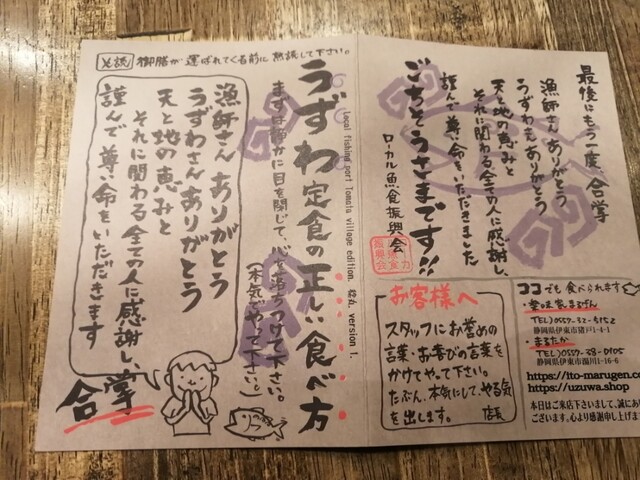 必読 御膳が運ばれてくる前に熟読して下さい。
うずわ定食の正しい食べ方
Local fishing port Tomato village edition. version 1.
まずは静かに目を閉じて、心を落ちつけて下さい。
(本気でやって下さい。)
漁師さんありがとう
うずわさんありがとう
天と地の恵みと
それに関わる全ての人に感謝し、
謹んで尊い命をいただきます
合掌
最後にもう一度、合掌
漁師さんありがとう
うずわもありがとう
天と地の恵みと
それに関わる全ての人に感謝し、
謹んで尊い命をいただきました
ごちそうさまです!!
ローカル魚食振興会
お客様へ
スタッフにお誉めの
言葉・お喜びの言葉を
かけてやって下さい。
たぶん、本気にして、やる気
を出します。 店長
ココでも食べられます
・楽味家まるげん
静岡県伊東市猪戸1-4-1
・まるたか
静岡県伊東市湯川1-16-6
https://ito-marugen.co
https://uzuwa.shop
本日はご来店下さいまして、誠にあ
ございます。心より感謝申し上げま